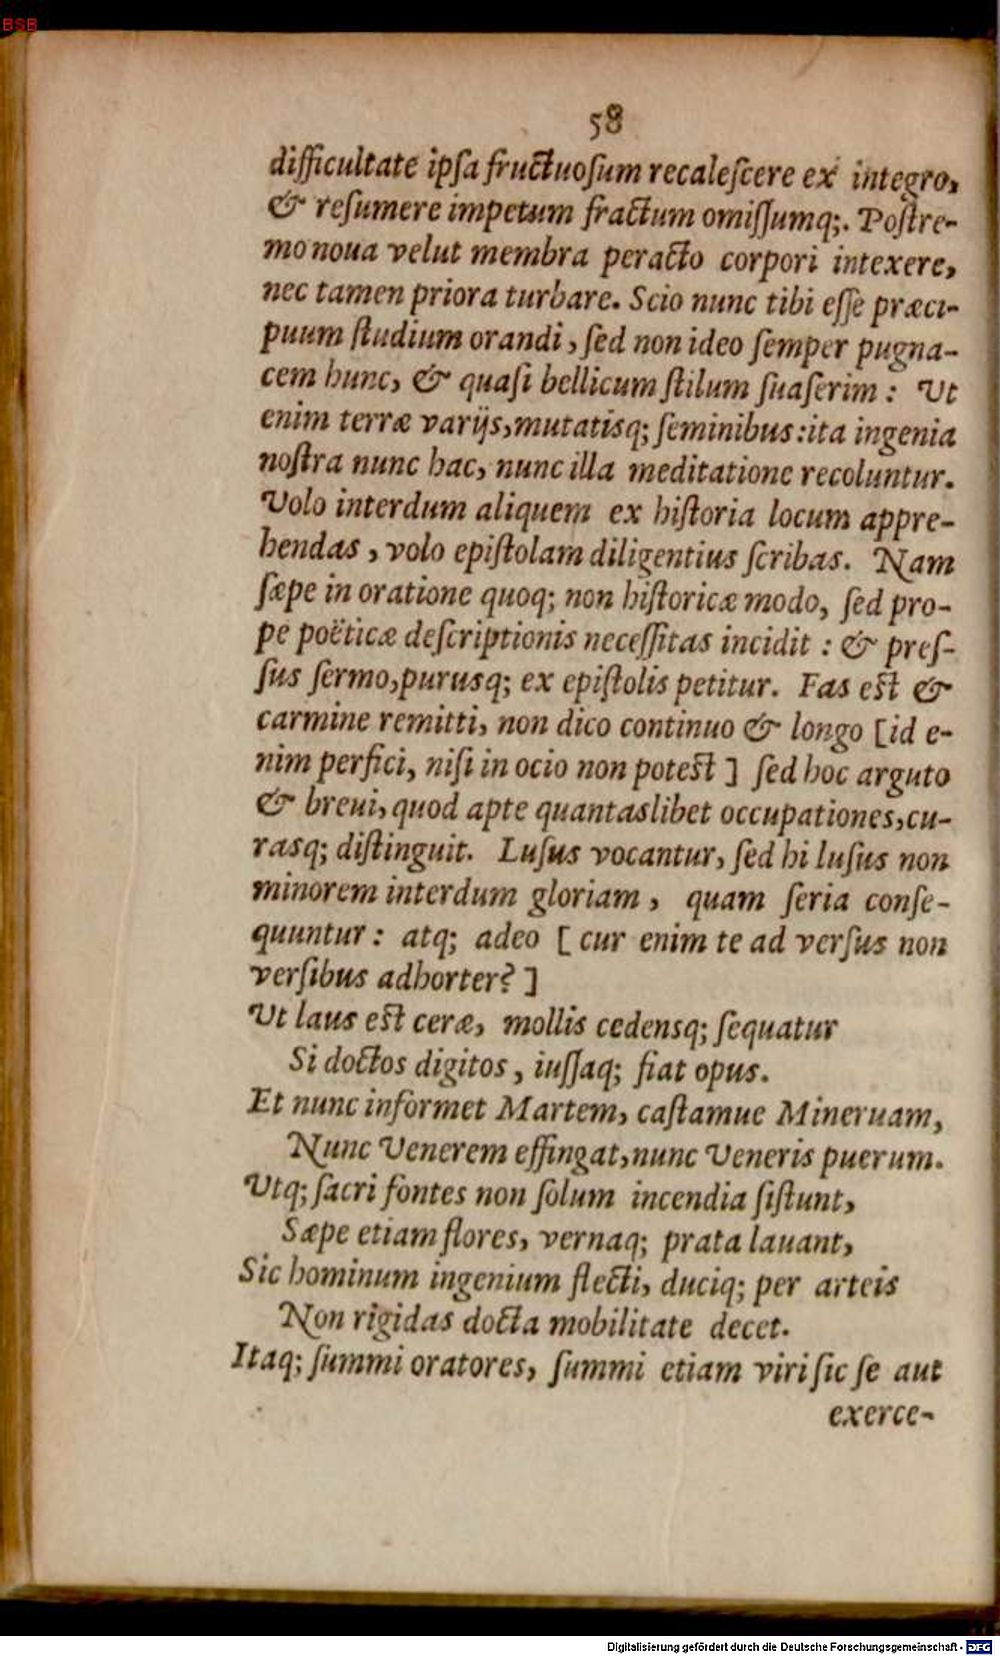 BSB
58
difficultate ipſa fructuoſum recaleſcere ex integro,
& reſumere impetum fractum omiſſumq;. Poſtre-
mo noua velut membra peracto corpori intexere,
nec tamen priora turbare. Scio nunc tibi eſſe præci-
puum ſtudium orandi, ſed non ideo ſemper pugna-
cem hunc, & quaſi bellicum ſtilum ſuaſerim: Ut
enim terræ varijs, mutatisq; ſeminibus: ita ingenia
noſtra nunc hac, nunc illa meditatione recoluntur.
Volo interdum aliquem ex hiſtoria locum appre-
hendas, volo epiſtolam diligentius ſcribas. Nam
ſæpe in oratione quoq; non hiſtoricæ modo, ſed pro-
pe poëticæ deſcriptionis neceſſitas incidit: & preſ-
ſus ſermo, purusq; ex epiſtolis petitur. Fas eſt &
carmine remitti, non dico continuo & longo [id e-
nim perfici, niſi in ocio non poteſt] ſed hoc arguto
& breui, quod apte quantaslibet occupationes, cu-
rasq; diſtinguit. Luſus vocantur, ſed hi luſus non
minorem interdum gloriam, quam ſeria conſe-
quuntur: atq; adeo [cur enim te ad verſus non
verſibus adhorter?]
Ut laus eſt ceræ, mollis cedensq; ſequatur
Si doctos digitos, iuſſaq; fiat opus.
Et nunc informet Martem, caſtamue Mineruam,
Nunc Venerem effingat, nunc Veneris puerum.
Utq; ſacri fontes non ſolum incendia ſiſtunt,
Sæpe etiam flores, vernaq; prata lauant,
Sic hominum ingenium flecti, duciq; per arteis
Non rigidas docta mobilitate decet.
Itaq; ſummi oratores, ſummi etiam viri ſic ſe aut
exerce-
Digitalisierung gefördert durch die Deutsche Forschungsgemeinschaft - DFG